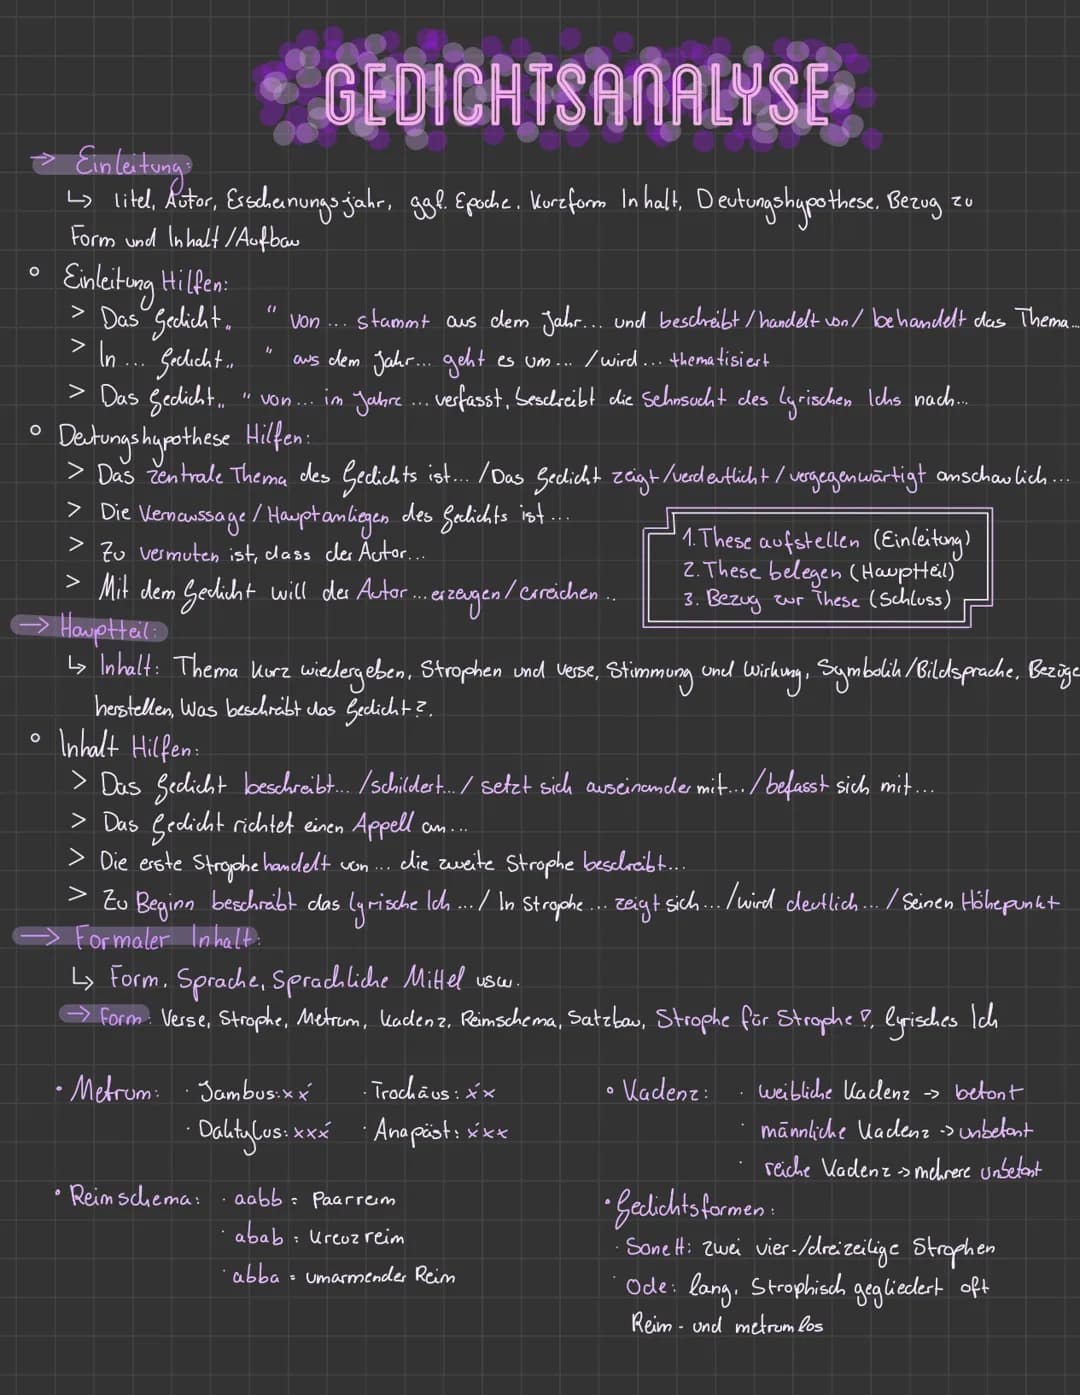 GEDICHTSANALYSE
→ Einleitung:
↳ Titel, Autor, Erscheinungsjahr, ggf. Epoche, Kurzform Inhalt, Deutungshypothese, Bezug zu
Form und Inhalt/Aufbau
° Einleitung Hilfen:
> Das Gedicht „ " von ... stammt aus dem Jahr... und beschreibt/handelt von/behandelt das Thema...
> In ... Gedicht „ " aus dem Jahr... geht es um... /wird... thematisiert
> Das Gedicht „ " von... im Jahre ... verfasst, beschreibt die Sehnsucht des Lyrischen Ichs nach...
° Deutungshypothese Hilfen:
> Das zentrale Thema des Gedichts ist... /Das Gedicht zeigt/verdeutlicht/vergegenwärtigt anschaulich...
> Die Kernaussage/Hauptanliegen des Gedichts ist...
> Zu vermuten ist, dass der Autor...
> Mit dem Gedicht will der Autor...erzeugen/erreichen..
1. These aufstellen (Einleitung)
2. These belegen (Hauptteil)
3. Bezug zur These (Schluss)
→ Hauptteil:
↳ Inhalt: Thema kurz wiedergeben, Strophen und Verse, Stimmung und Wirkung, Symbolik/Bildsprache, Bezüge
herstellen, Was beschreibt das Gedicht?,
° Inhalt Hilfen:
> Das Gedicht beschreibt... /schildert.../ setzt sich auseinander mit... /befasst sich mit...
> Das Gedicht richtet einen Appell an...
> Die erste Strophe handelt von... die zweite Strophe beschreibt...
> Zu Beginn beschreibt das lyrische Ich .../ In Strophe... zeigt sich... /wird deutlich... /Seinen Höhepunkt
→ Formaler Inhalt:
↳ Form, Sprache, Sprachliche Mittel usw.
→ Form: Verse, Strophe, Metrum, Kadenz, Reimschema, Satzbau, Strophe für Strophe?, lyrisches Ich
· Metrum: · Jambus: x x́ · Trochäus: x́ x
· Daktylus: x x x́ · Anapäst: x́ x x
° Kadenz: · weibliche Kadenz -> betont
· männliche Kadenz -> unbetont
· reiche Kadenz -> mehrere unbetont
° Reimschema: · aabb = Paarreim
· abab = Kreuzreim
· abba = umarmender Reim
· Gedichtsformen:
· Sonett: zwei vier-/dreizeilige Strophen
· Ode: lang, Strophisch gegliedert oft
Reim- und metrumlos